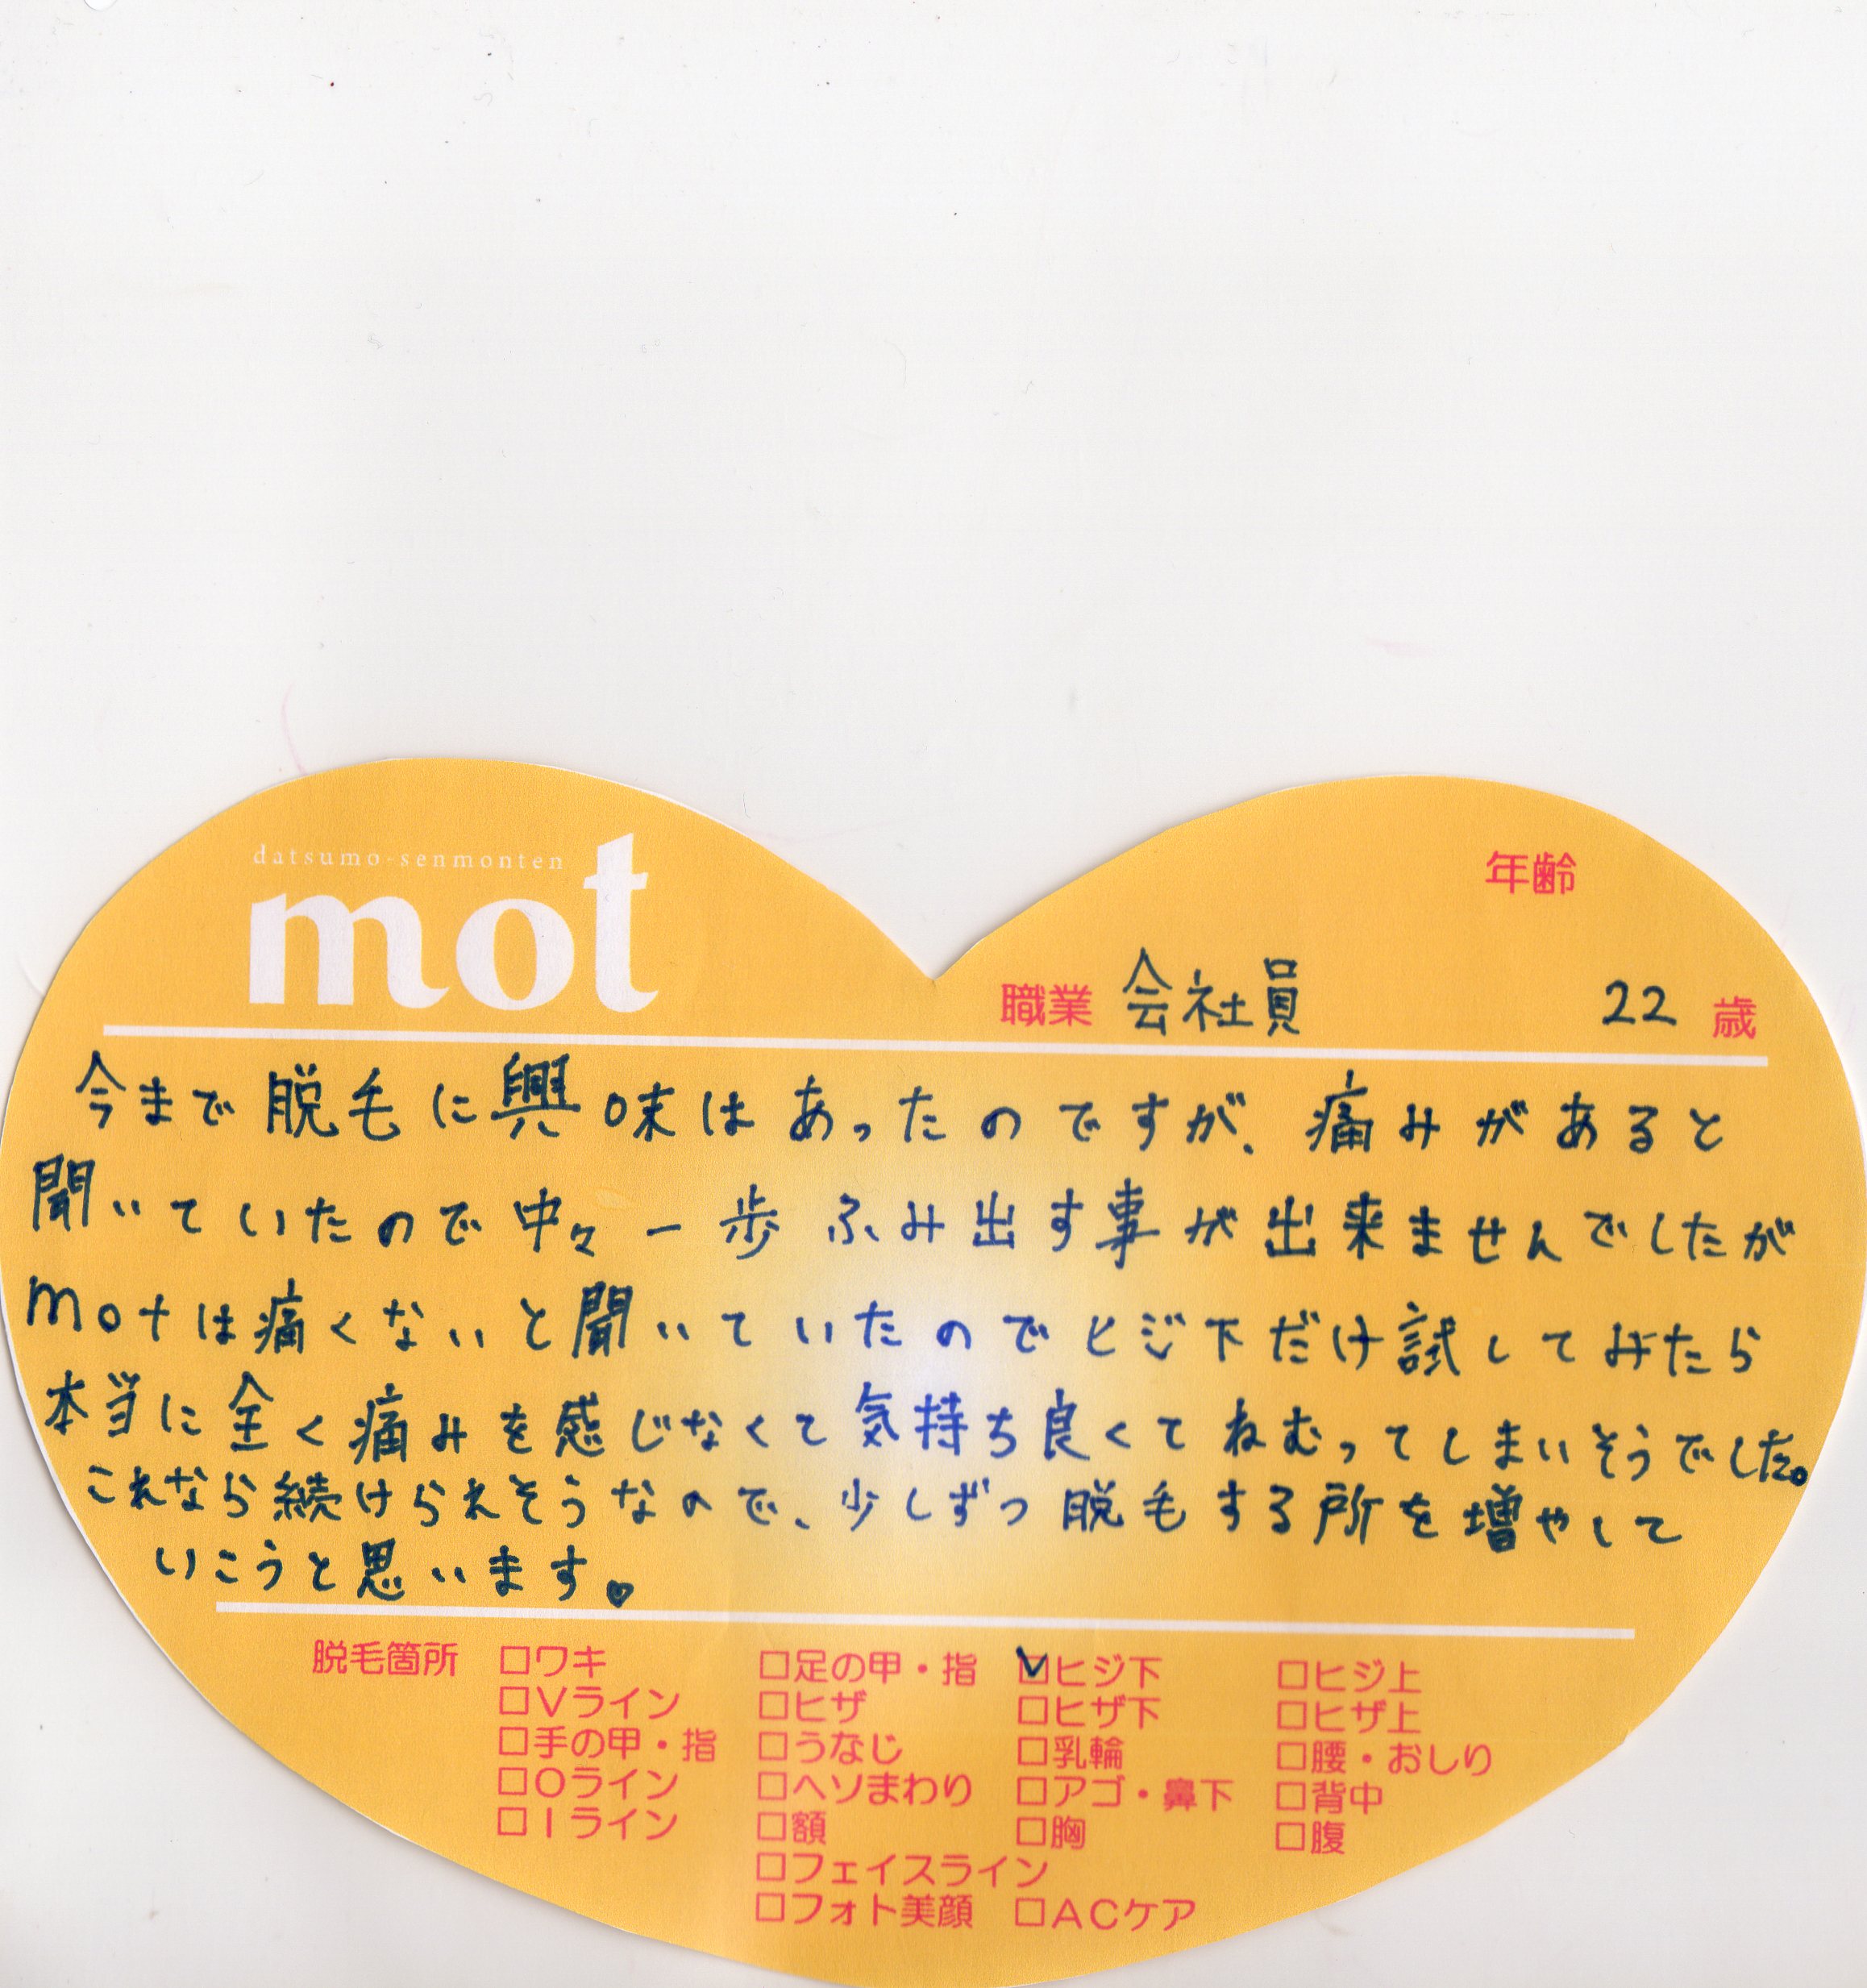 datsumo-senmonten
mot
年齢
職業 会社員 22 歳
今まで脱毛に興味はあったのですが、痛みがあると
聞いていたので中々一歩ふみ出す事が出来ませんでしたが
motは痛くないと聞いていたのでヒジ下だけ試してみたら
本当に全く痛みを感じなくて気持ち良くてねむってしまいそうでした。
これなら続けられそうなので、少しずつ脱毛する所を増やして
いこうと思います。♡
脱毛箇所 □ワキ □足の甲・指 ☑ヒジ下 □ヒジ上
□Vライン □ヒザ □ヒザ下 □ヒザ上
□手の甲・指 □うなじ □乳輪 □腰・おしり
□Oライン □ヘソまわり □アゴ・鼻下 □背中
□Iライン □額 □胸 □腹
□フェイスライン
□フォト美顔 □ACケア